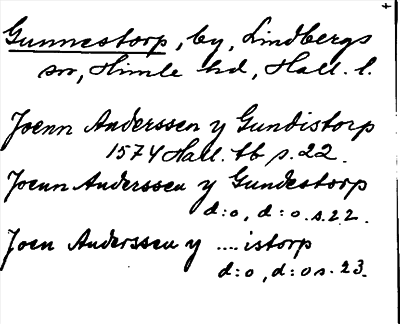 Gunnestorp, by, Lindbergs
sn, Himle hd, Hall. l.
Joenn Anderssen y Gundistorp
1574 Hall. tb s. 22.
Joenn Anderssen y Gundestorp
d:o, d:o s. 22.
Joen Anderssen y ....istorp
d:o, d:o s. 23.